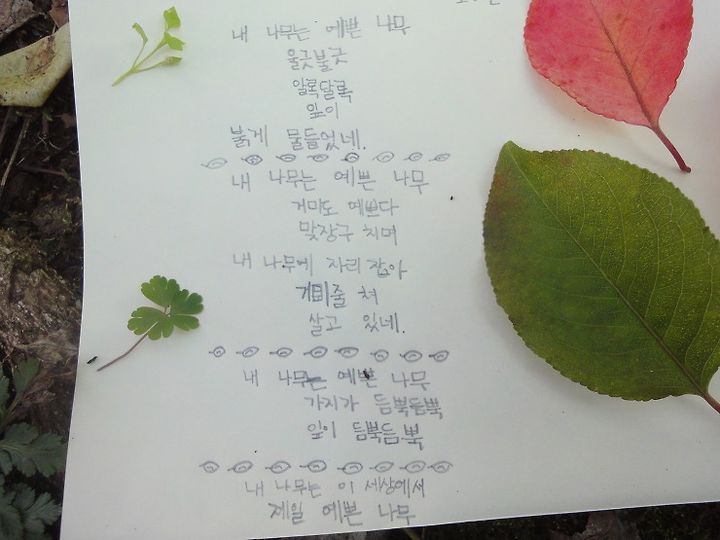 내 나무는 예쁜 나무
울긋불긋
알록달록
잎이
붉게 물들었네.
내 나무는 예쁜 나무
거미도 예쁘다
맞장구 치며
내 나무에 자리 잡아
거미줄 쳐
살고 있네.
내 나무는 예쁜 나무
가지가 듬뿍듬뿍
잎이 듬뿍듬뿍
내 나무는 이 세상에서
제일 예쁜 나무